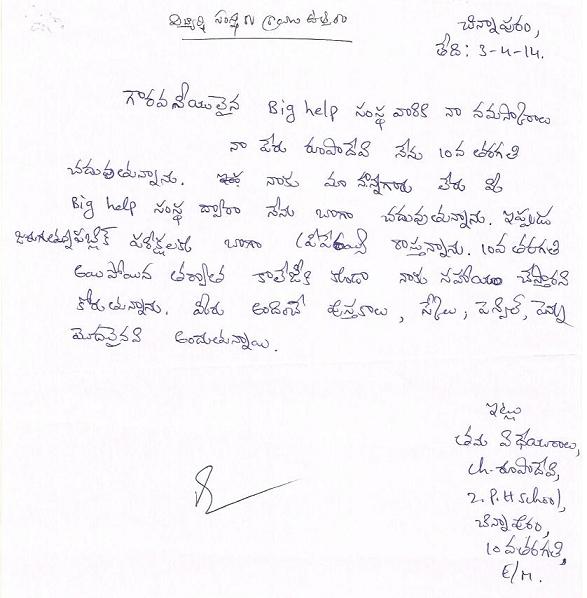 విద్యార్థి సంస్థకు వ్రాయు ఉత్తరం
చిన్నాపురం,
తేది: 3-4-14.
గౌరవనీయులైన Big help సంస్థ వారికి నా నమస్కారాలు
నా పేరు రూపాదేవి నేను 10వ తరగతి
చదువుతున్నాను. నాకు మా నాన్నగారు లేరు మీ
Big help సంస్థ ద్వారా నేను బాగా చదువుతున్నాను. ఇప్పుడు
జరుగుతున్న పబ్లిక్ పరీక్షలకు బాగా (ప్రిపేరయి) రాస్తున్నాను. 10వ తరగతి
అయిపోయిన తర్వాత కాలేజికి కూడా నాకు సహాయం చేస్తారని
కోరుతున్నాను. మీరు అందించే పుస్తకాలు, స్కేలు, పెన్సిల్, పెన్ను
మొదలైనవి అందుతున్నాయి.
ఇట్లు
తమ విధేయురాలు,
ch. రూపాదేవి,
Z.P.H School,
చిన్నాపురం,
10వ తరగతి,
E/M.